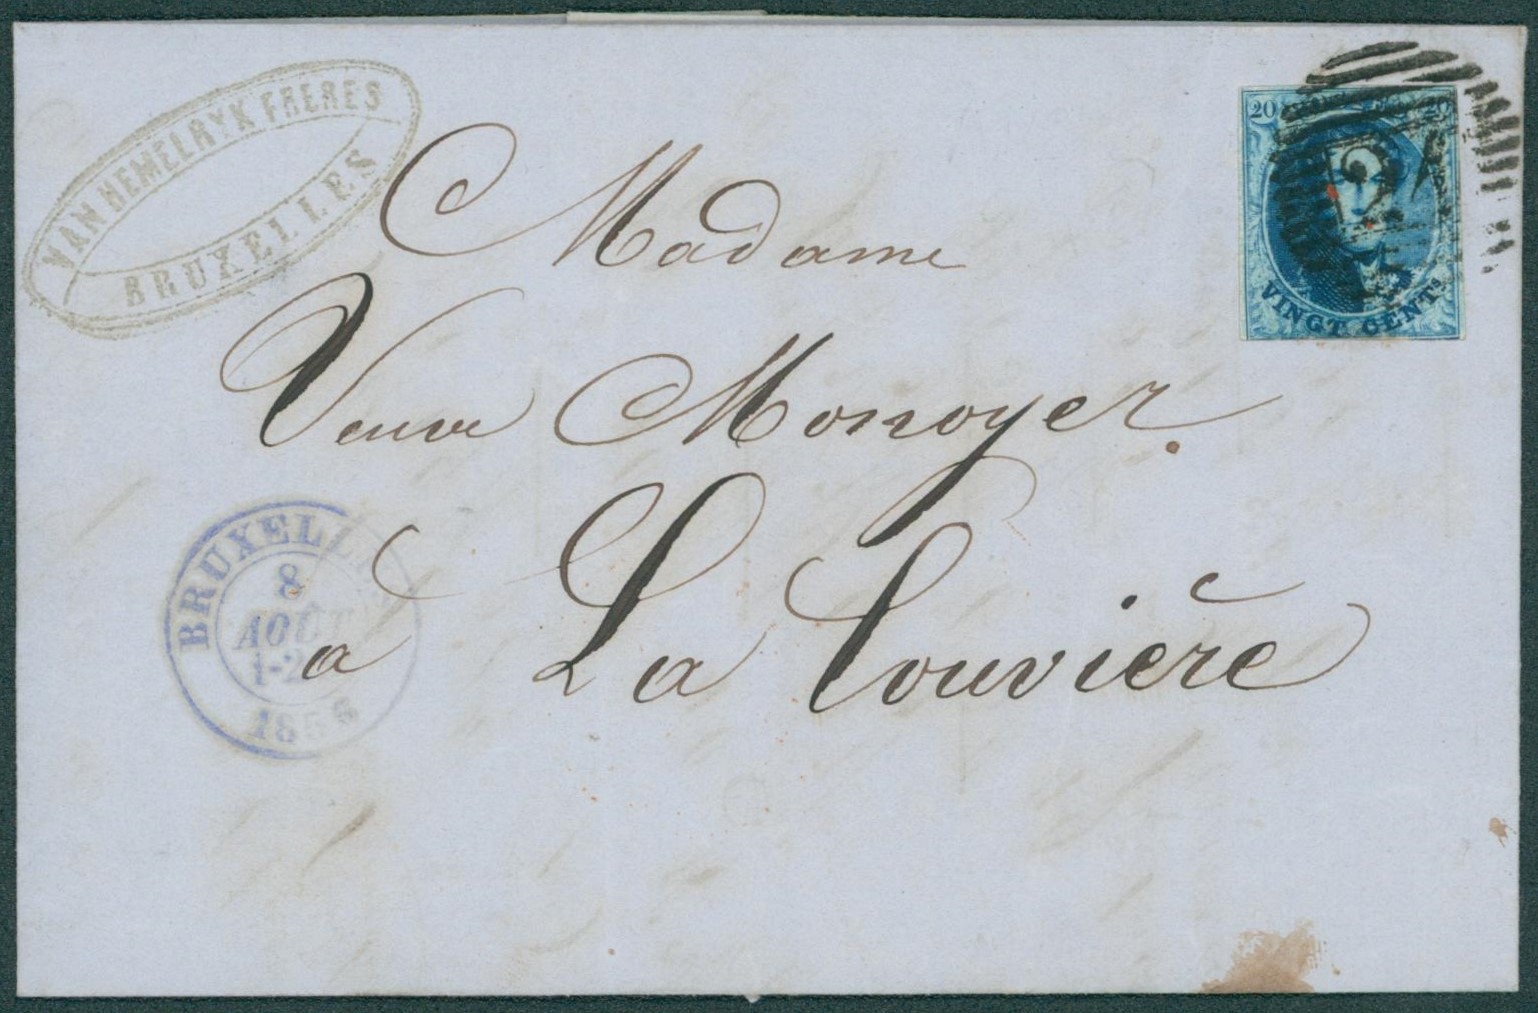 VAN HEMELRYK FRERES
BRUXELLES
20 20
VINGT CENTS
Madame
Veuve Monoyer
à La Louvière
BRUXELLES
8
AOUT
1-2
1856